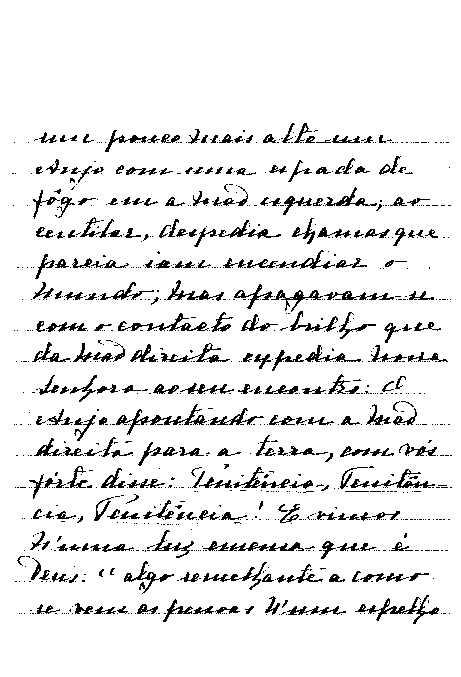 um pouco mais alto um
Anjo com uma espada de
fôgo em a mão esquerda; ao
centilar, despedia chamas que
parecia iam encendiar o
mundo; mas apagavam-se
com o contacto do brilho que
da mão direita expedia Nossa
Senhora ao seu encontro: O
Anjo apontando com a mão
direita para a terra, com vós
fórte disse: Penitência, Peniten
cia, Penitência! E vimos
n'uma luz emensa que é
Deus: "algo semelhante a como
se vem as pessoas n'um espelho